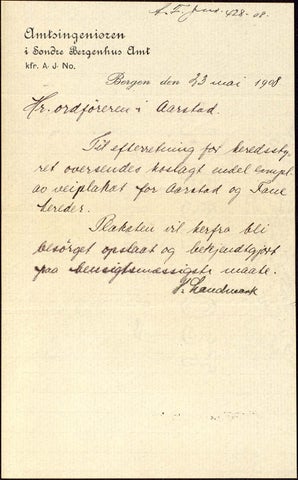 A. F. Jnr. 428-08.
Amtsingeniøren
i Søndre Bergenhus Amt
kfr. A. J. No.
Bergen den 23 mai 1908
Hr. ordføreren i Aarstad.
Til efterretning for heredssty
ret oversendes hoslagt endel exempl.
av veiplakat for Aarstad og Fane
hereder.
Plakaten vil herfra bli
besörget opslaat og bekjendtgjort
paa hensigtsmæssigste maate.
Landmark